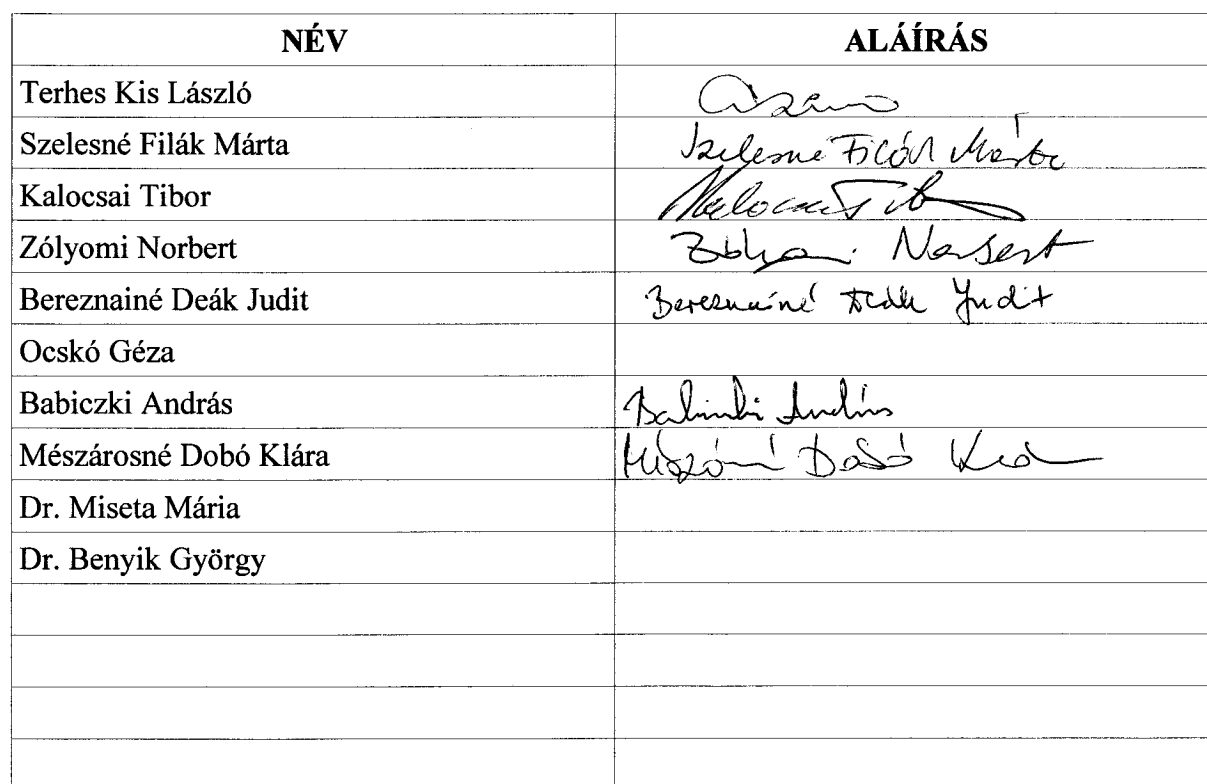 NÉV ALÁÍRÁS
Terhes Kis László
Szelesné Filák Márta Szelesné Filák Márta
Kalocsai Tibor Kalocsai Tib
Zólyomi Norbert Zólyomi Norbert
Bereznainé Deák Judit Bereznainé Deák Judit
Ocskó Géza
Babiczki András Babiczki András
Mészárosné Dobó Klára Mészárosné Dobó Klára
Dr. Miseta Mária
Dr. Benyik György